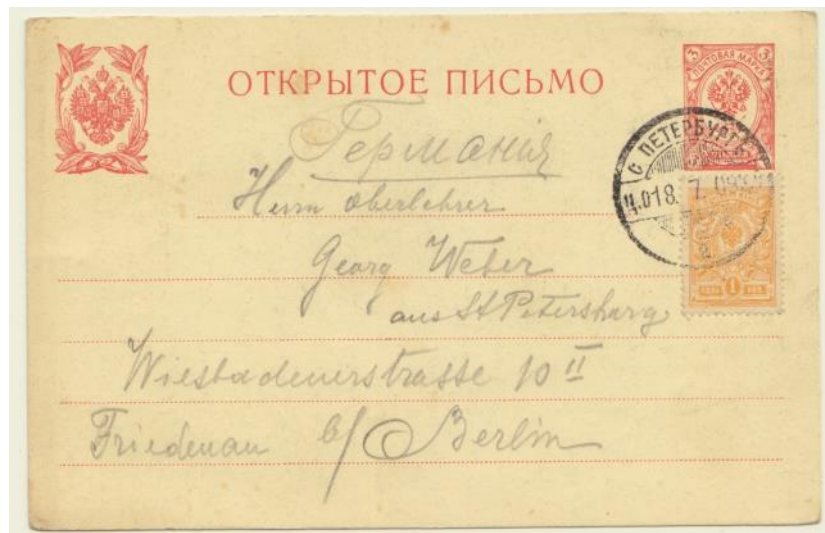 ОТКРЫТОЕ ПИСЬМО
3 ПОЧТОВАЯ МАРКА 3
С ПЕТЕРБУРГЪ
18. 7. 09
1
Германія
Herrn Oberlehrer
Georg Weber
aus St Petersburg
Wiesbadenerstrasse 10 II
Friedenau b/ Berlin